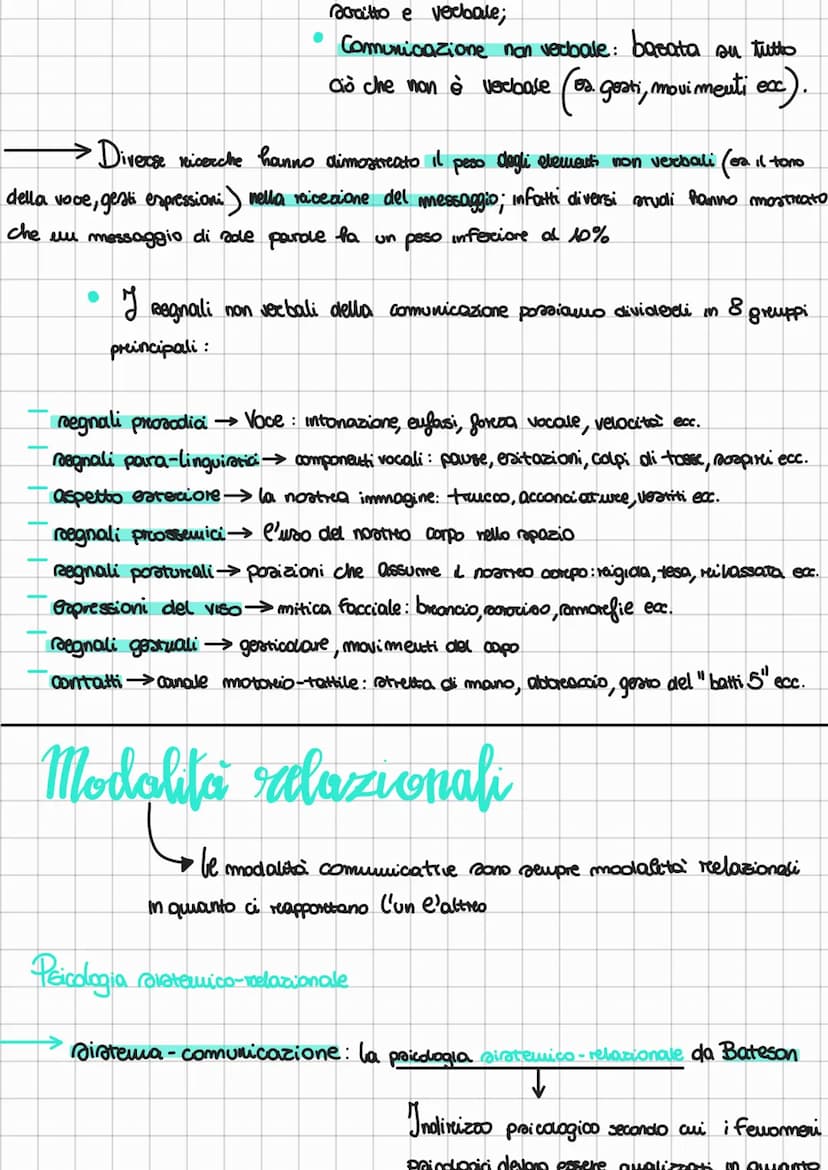 scritto e verbale;
• Comunicazione non verbale: basata su tutto
ciò che non è verbale (es. gesti, movimenti ecc).
→ Diverse ricerche hanno dimostrato il peso degli elementi non verbali (es il tono
della voce, gesti espressioni) nella ricezione del messaggio; infatti diversi studi hanno mostrato
che un messaggio di sole parole ha un peso inferiore al 10%
• I segnali non verbali della comunicazione possiamo dividerli in 8 gruppi
principali:
– segnali prosodici → Voce: intonazione, enfasi, forza vocale, velocità ecc.
– segnali para-linguistici → componenti vocali: pause, esitazioni, colpi di tosse, sospiri ecc.
– aspetto esteriore → la nostra immagine: trucco, acconciature, vestiti ecc.
– segnali prossemici → l'uso del nostro corpo nello spazio
– segnali posturali → posizioni che assume il nostro corpo: rigida, tesa, rilassata ecc.
– espressioni del viso → mitica facciale: broncio, sorriso, smorfie ecc.
– segnali gestuali → gesticolare, movimenti del capo
– contatti → canale motorio-tattile: stretta di mano, abbraccio, gesto del "batti 5" ecc.
Modalità relazionali
le modalità comunicative sono sempre modalità relazionali
in quanto ci rapportano l'un l'altro
Psicologia sistemico-relazionale
→ sistema-comunicazione: la psicologia sistemico-relazionale da Bateson
Indirizzo psicologico secondo cui i fenomeni
psicologici devono essere analizzati in quanto